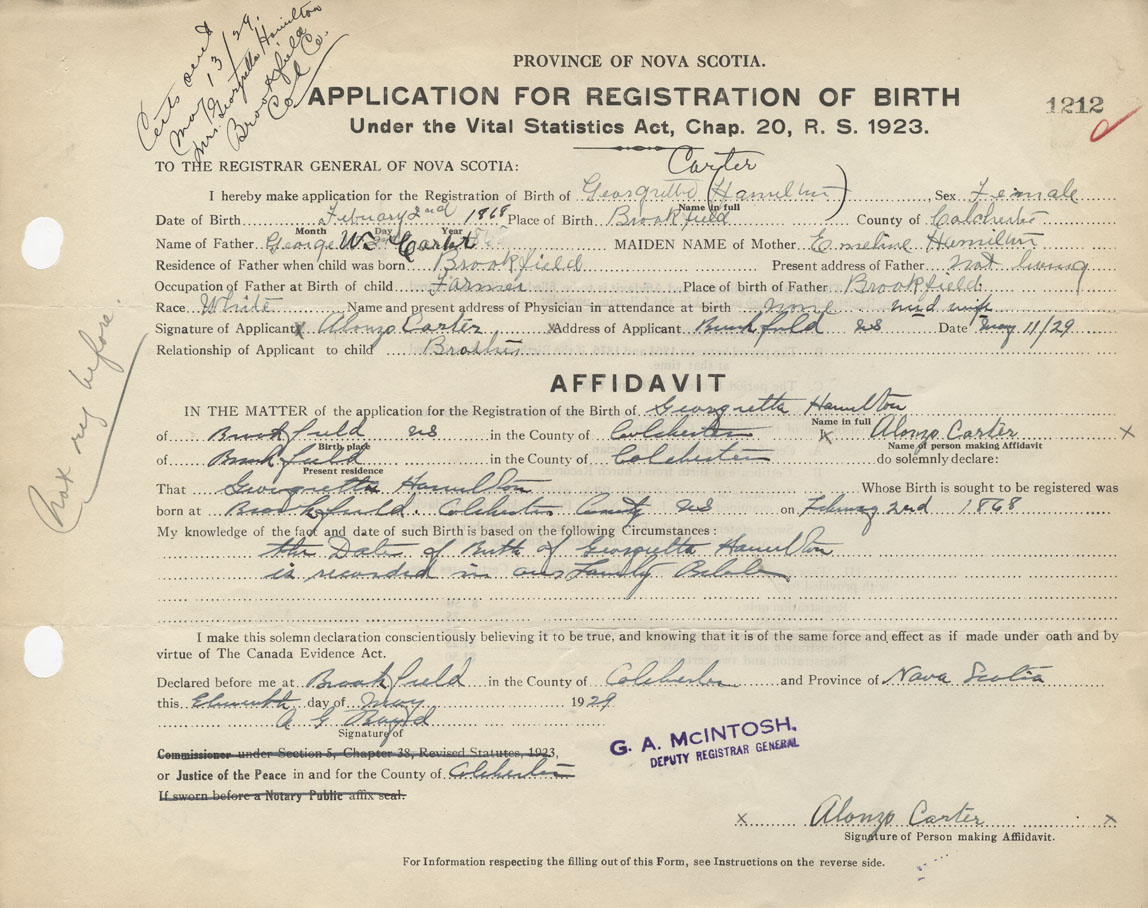 Certs sent
May 13/29.
Mrs. Georgretta Hamilton
Brookfield
Col. Co.
PROVINCE OF NOVA SCOTIA.
APPLICATION FOR REGISTRATION OF BIRTH
1212
Under the Vital Statistics Act, Chap. 20, R. S. 1923.
TO THE REGISTRAR GENERAL OF NOVA SCOTIA:
Carter
I hereby make application for the Registration of Birth of Georgretta (Hamilton) Sex Female
Name in full
Date of Birth February 2nd 1868 Place of Birth Brookfield County of Colchester
Month Day Year
Name of Father George W. Carter MAIDEN NAME of Mother Emeline Hamilton
Residence of Father when child was born Brookfield Present address of Father not living
Occupation of Father at Birth of child Farmer Place of birth of Father Brookfield
Race White Name and present address of Physician in attendance at birth none mid wife
Signature of Applicant x Alonzo Carter x Address of Applicant Brookfield NS Date May 11/29
Relationship of Applicant to child Brother
Not reg before.
AFFIDAVIT
IN THE MATTER of the application for the Registration of the Birth of Georgretta Hamilton
Name in full
of Brookfield NS in the County of Colchester I x Alonzo Carter x
Birth place Name of person making Affidavit
of Brookfield in the County of Colchester do solemnly declare:
Present residence
That Georgretta Hamilton Whose Birth is sought to be registered was
born at Brookfield. Colchester County NS on February 2nd 1868
My knowledge of the fact and date of such Birth is based on the following Circumstances:
the Date of Birth of Georgretta Hamilton
is recorded in our Family Bible
I make this solemn declaration conscientiously believing it to be true, and knowing that it is of the same force and effect as if made under oath and by
virtue of The Canada Evidence Act.
Declared before me at Brookfield in the County of Colchester and Province of Nova Scotia
this Eleventh day of May 1929
A G Boyd
Signature of
Commissioner under Section 5, Chapter 38, Revised Statutes, 1923,
or Justice of the Peace in and for the County of Colchester
If sworn before a Notary Public affix seal.
G. A. McINTOSH,
DEPUTY REGISTRAR GENERAL
x Alonzo Carter x
Signature of Person making Affidavit.
For Information respecting the filling out of this Form, see Instructions on the reverse side.